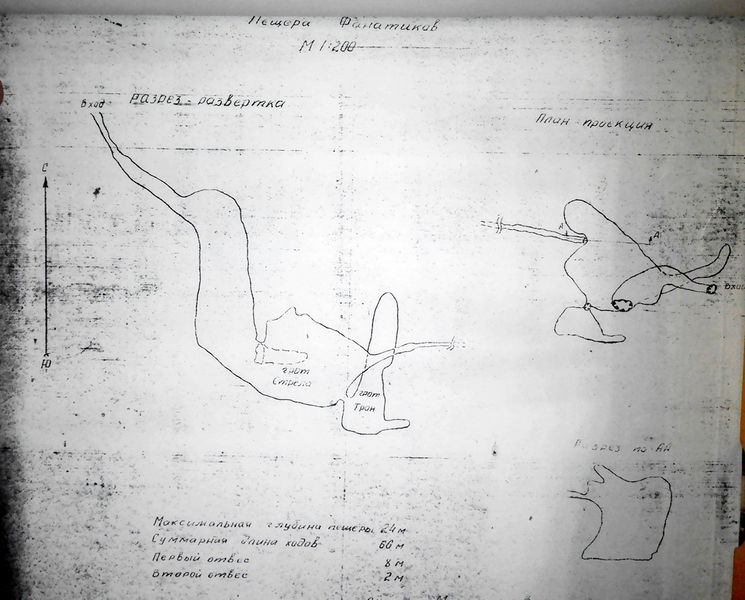 Пещера Фанатиков
М 1:200
Разрез-развертка
План-проекция
Вход
С
Ю
А
А
Вход
грот
Стрела
грот
Трон
Разрез по АА
Максимальная глубина пещеры 24 м
Суммарная длина ходов 60 м
Первый отвес 8 м
Второй отвес 2 м